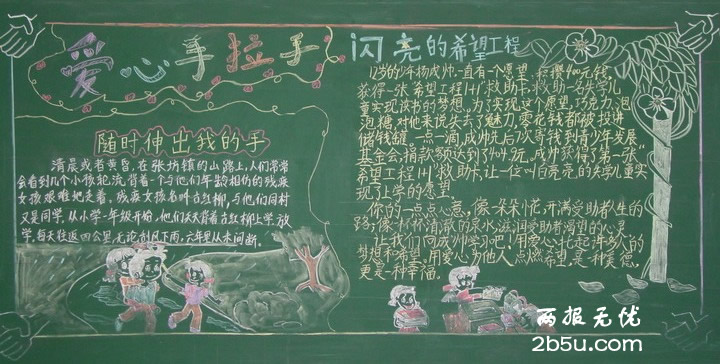 爱心手拉手
随时伸出我的手
清晨或者黄昏,在张坊镇的山路上,人们常常
会看到几个小孩轮流背着一个与他们年龄相仿的残疾
女孩艰难地走着,残疾女孩名叫古红柳,与他们同村
又是同学,从小学一年级开始,他们天天背着古红柳上学放
学,每天往返四公里,无论刮风下雨,六年里从未间断。
闪亮的希望工程
12岁的少年杨成帅一直有一个愿望:积攒400元钱,
获得一张"希望工程1+1"救助卡,救助一名失学儿
童实现读书的梦想,为了实现这个愿望,巧克力、泡
泡糖对他来说失去了魅力,零花钱都被投进
储钱罐,一点一滴,成帅先后7次寄钱到青少年发展
基金会,捐款额达到了
成帅获得了第一张"
希望工程1+1"救助卡,让一位叫白亮亮的失学儿童实
现了上学的愿望。
你的一点点心意,像一朵朵小花,开满受助者人生的
路;像一杯杯清澈的泉水,滋润受助者渴望的心灵。
让我们向成帅学习吧!用爱心托起许多人的
梦想和希望,用爱心为他人点燃希望,是一种美德,
更是一种幸福。
两报无忧
2b5u.com